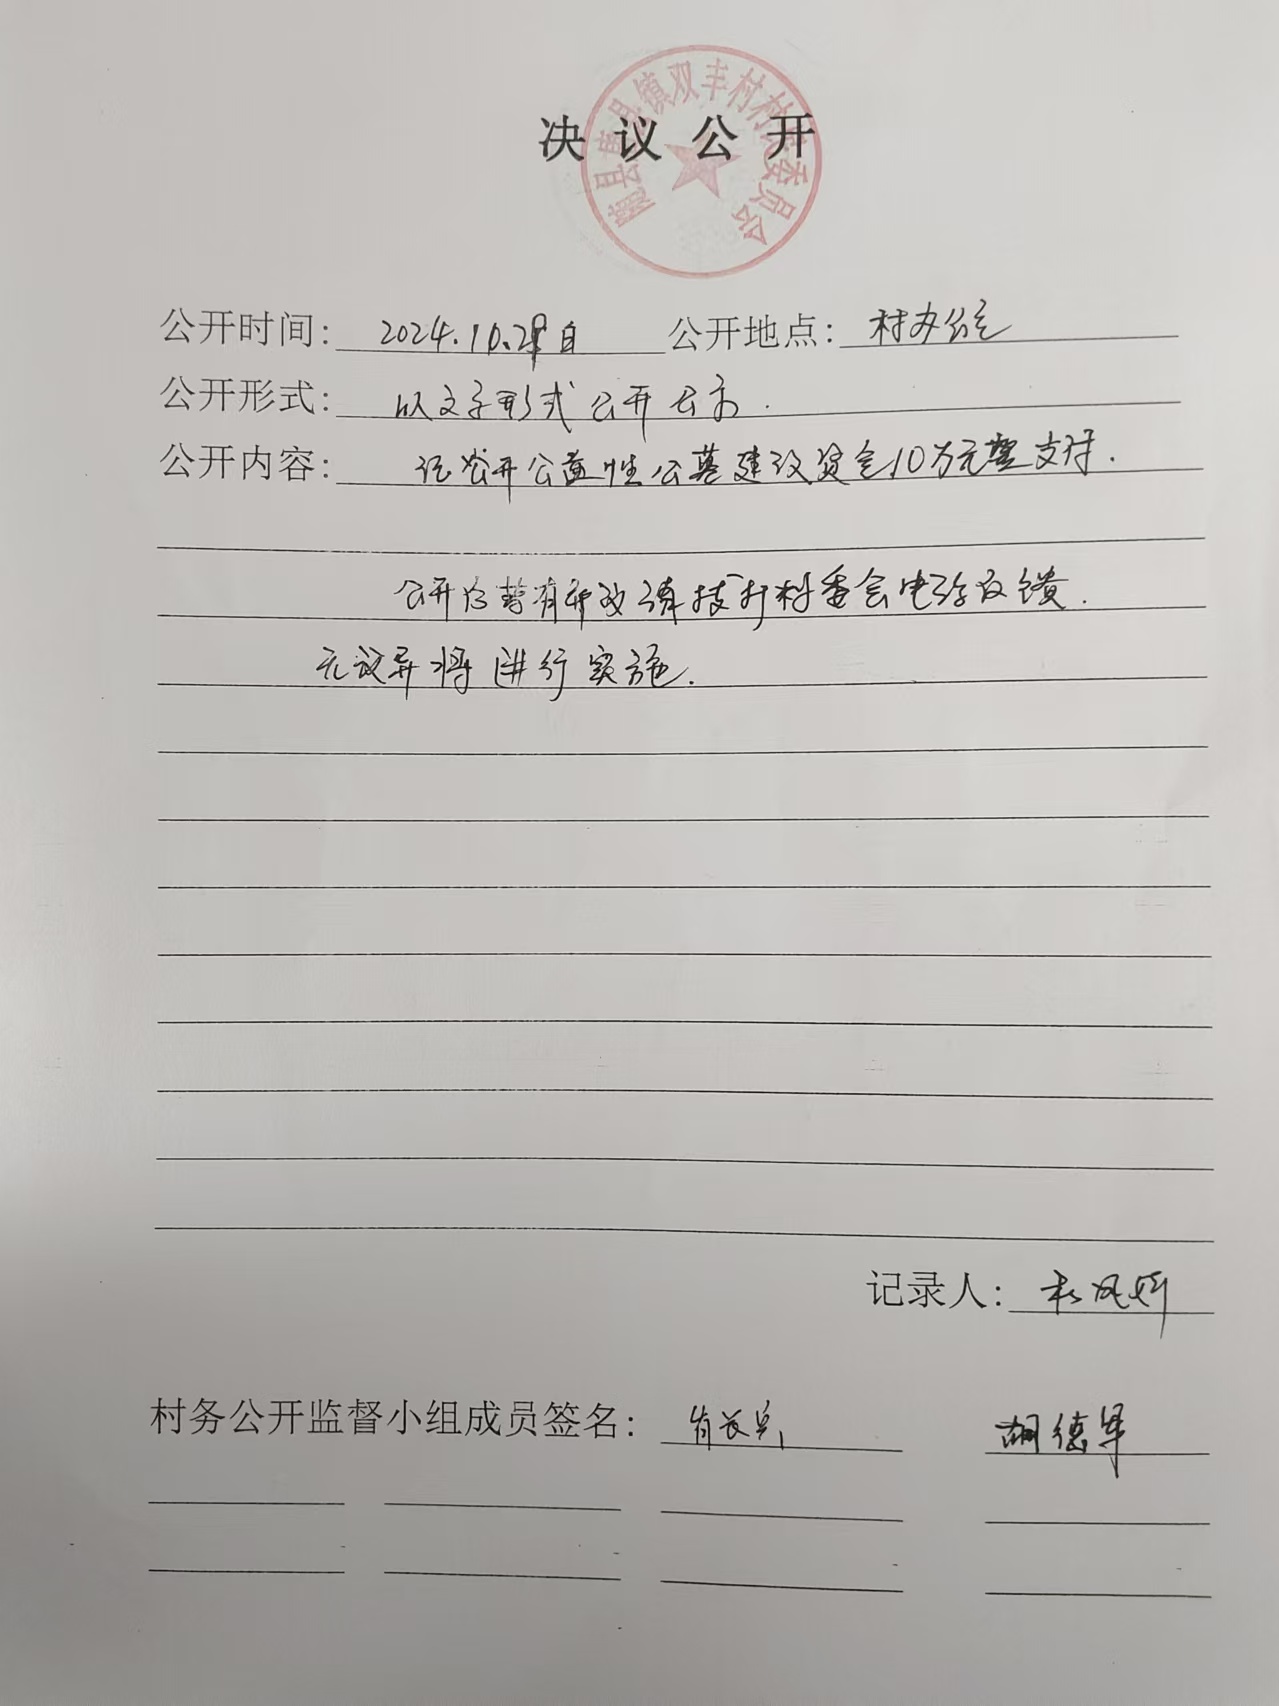 决议公开
随县 县镇双丰村村民委员会
公开时间: 2024.10.29日 公开地点: 村办公室
公开形式: 以文字形式公开公示.
公开内容: 公开公益性公墓建设资金10万元整支付.
公开后若有异议请拨打村委会电话反馈.
无议异将进行实施.
记录人:
村务公开监督小组成员签名: 胡德军